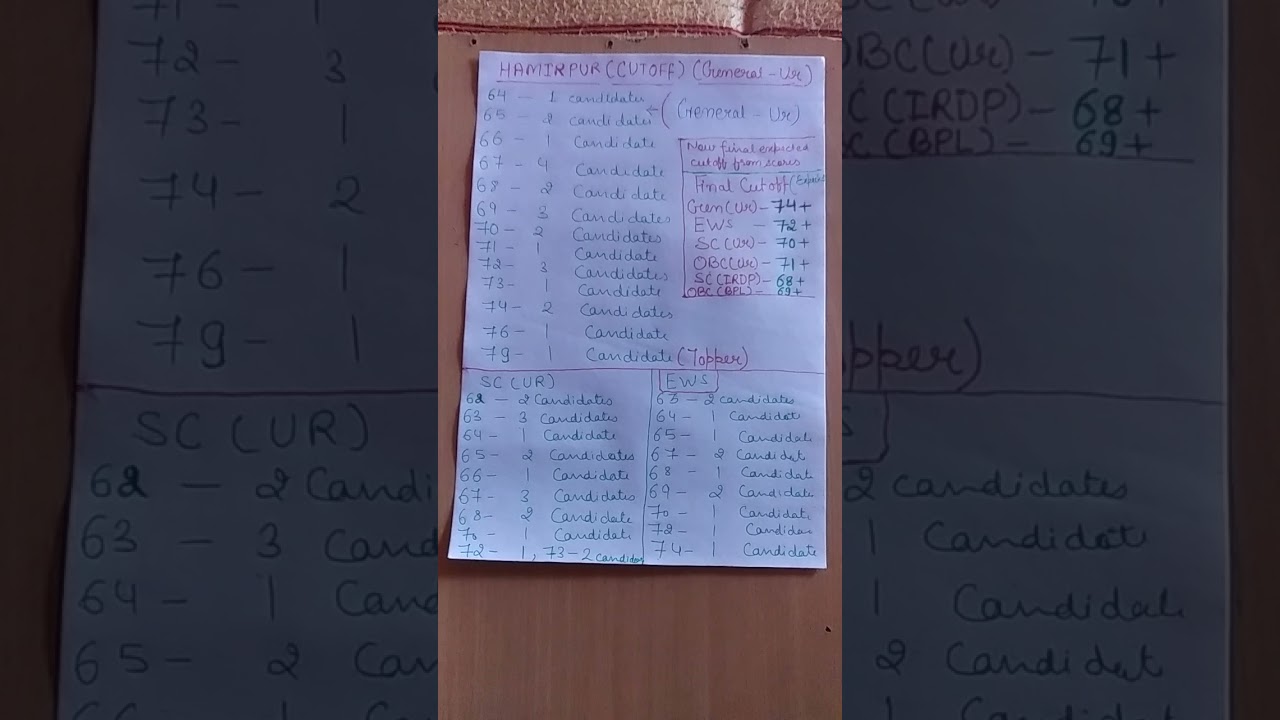 HAMIRPUR (CUTOFF) (General - Ur)
64 - 1 candidates
65 - 2 candidates ← (General - Ur)
66 - 1 Candidate
67 - 4 Candidate
68 - 2 Candidate
69 - 3 Candidates
70 - 2 Candidates
71 - 1 Candidate
72 - 3 Candidates
73 - 1 Candidate
74 - 2 Candidates
76 - 1 Candidate
79 - 1 Candidate (Topper)
Now final expected
cutoff from scores
Final Cutoff
Gen (Ur) - 74+
EWS - 72+
SC (Ur) - 70+
OBC (Ur) - 71+
SC (IRDP) - 68+
OBC (BPL) - 69+
SC (UR)
62 - 2 Candidates
63 - 3 Candidates
64 - 1 Candidate
65 - 2 Candidates
66 - 1 Candidate
67 - 3 Candidates
68 - 2 Candidate
70 - 1 Candidate
72 - 1, 73 - 2 candidates
EWS
63 - 2 candidates
64 - 1 Candidat
65 - 1 Candidat
67 - 2 Candidat
68 - 1 Candidat
69 - 2 Candidate
70 - 1 Candidat
72 - 1 Candidat
74 - 1 Candidate